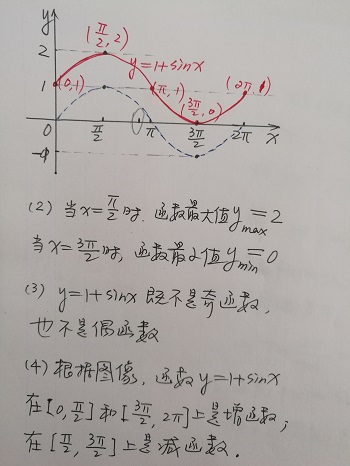 y
(π/2, 2)
2
y=1+sinx
1
(0,1)
(π,1)
(3π/2, 0)
(2π, 1)
0
π/2
π
3π/2
2π
x
-1
(2) 当x=π/2时,函数最大值y_max=2
当x=3π/2时,函数最小值y_min=0
(3) y=1+sinx既不是奇函数,
也不是偶函数
(4)根据图像,函数y=1+sinx
在[0,π/2]和[3π/2,2π]上是增函数;
在[π/2,3π/2]上是减函数.